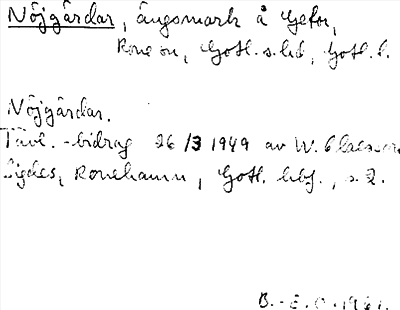 Nöjgårdar, ängsmark å Gefor,
Rone sn, Gotl. s. hd, Gotl. l.
Nöjgårdar.
Tävl.-bidrag 26/3 1949 av W. Claeson
Sigdes, Ronehamn, Gotl. hbf., s. 2.
B.-E. O. 1961.